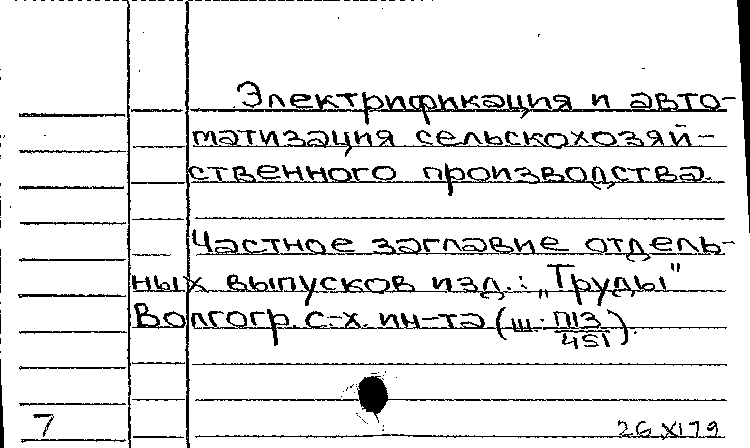 Электрификация и авто-
матизация сельскохозяй-
ственного производства.
Частное заглавие отдель-
ных выпусков изд.: „Труды"
Волгогр. с.-х. ин-та (ш. П13/451).
7
26.XI79